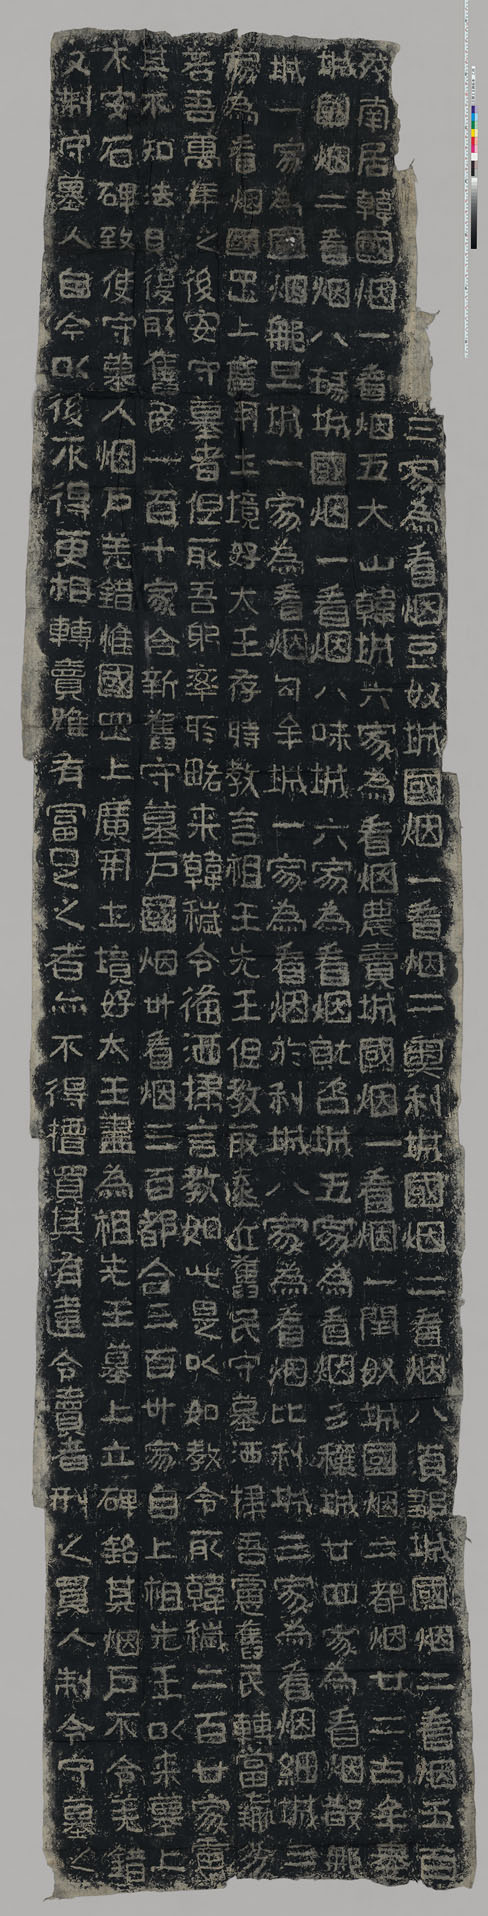 三家為看烟豆奴城國烟一看烟二奧利城國烟二看烟八須鄒城國烟二看烟五百
殘南居韓國烟一看烟五大山韓城六家為看烟農賣城國烟一看烟一閏奴城國烟二都烟廿二古牟婁
城國烟二看烟八瑑城國烟一看烟八味城六家為看烟就咨城五家為看烟彡穰城廿四家為看烟散那
城一家為國烟那旦城一家為看烟勾牟城一家為看烟於利城八家為看烟比利城三家為看烟細城三
家為看烟國罡上廣開土境好太王存時教言祖王先王但教取遠近舊民守墓洒掃吾慮舊民轉當羸劣
若吾萬年之後安守墓者但取吾躬率所略来韓穢令備洒掃言教如此是以如教令取韓穢二百廿家慮
其不知法則復取舊民一百十家合新舊守墓戶國烟卅看烟三百都合三百卅家自上祖先王以来墓上
不安石碑致使守墓人烟戶羌錯惟國罡上廣開土境好太王盡為祖先王墓上立碑銘其烟戶不令羌錯
又制守墓人自今以後不得更相轉賣雖有富足之者亦不得擅買其有違令賣者刑之買人制令守墓之